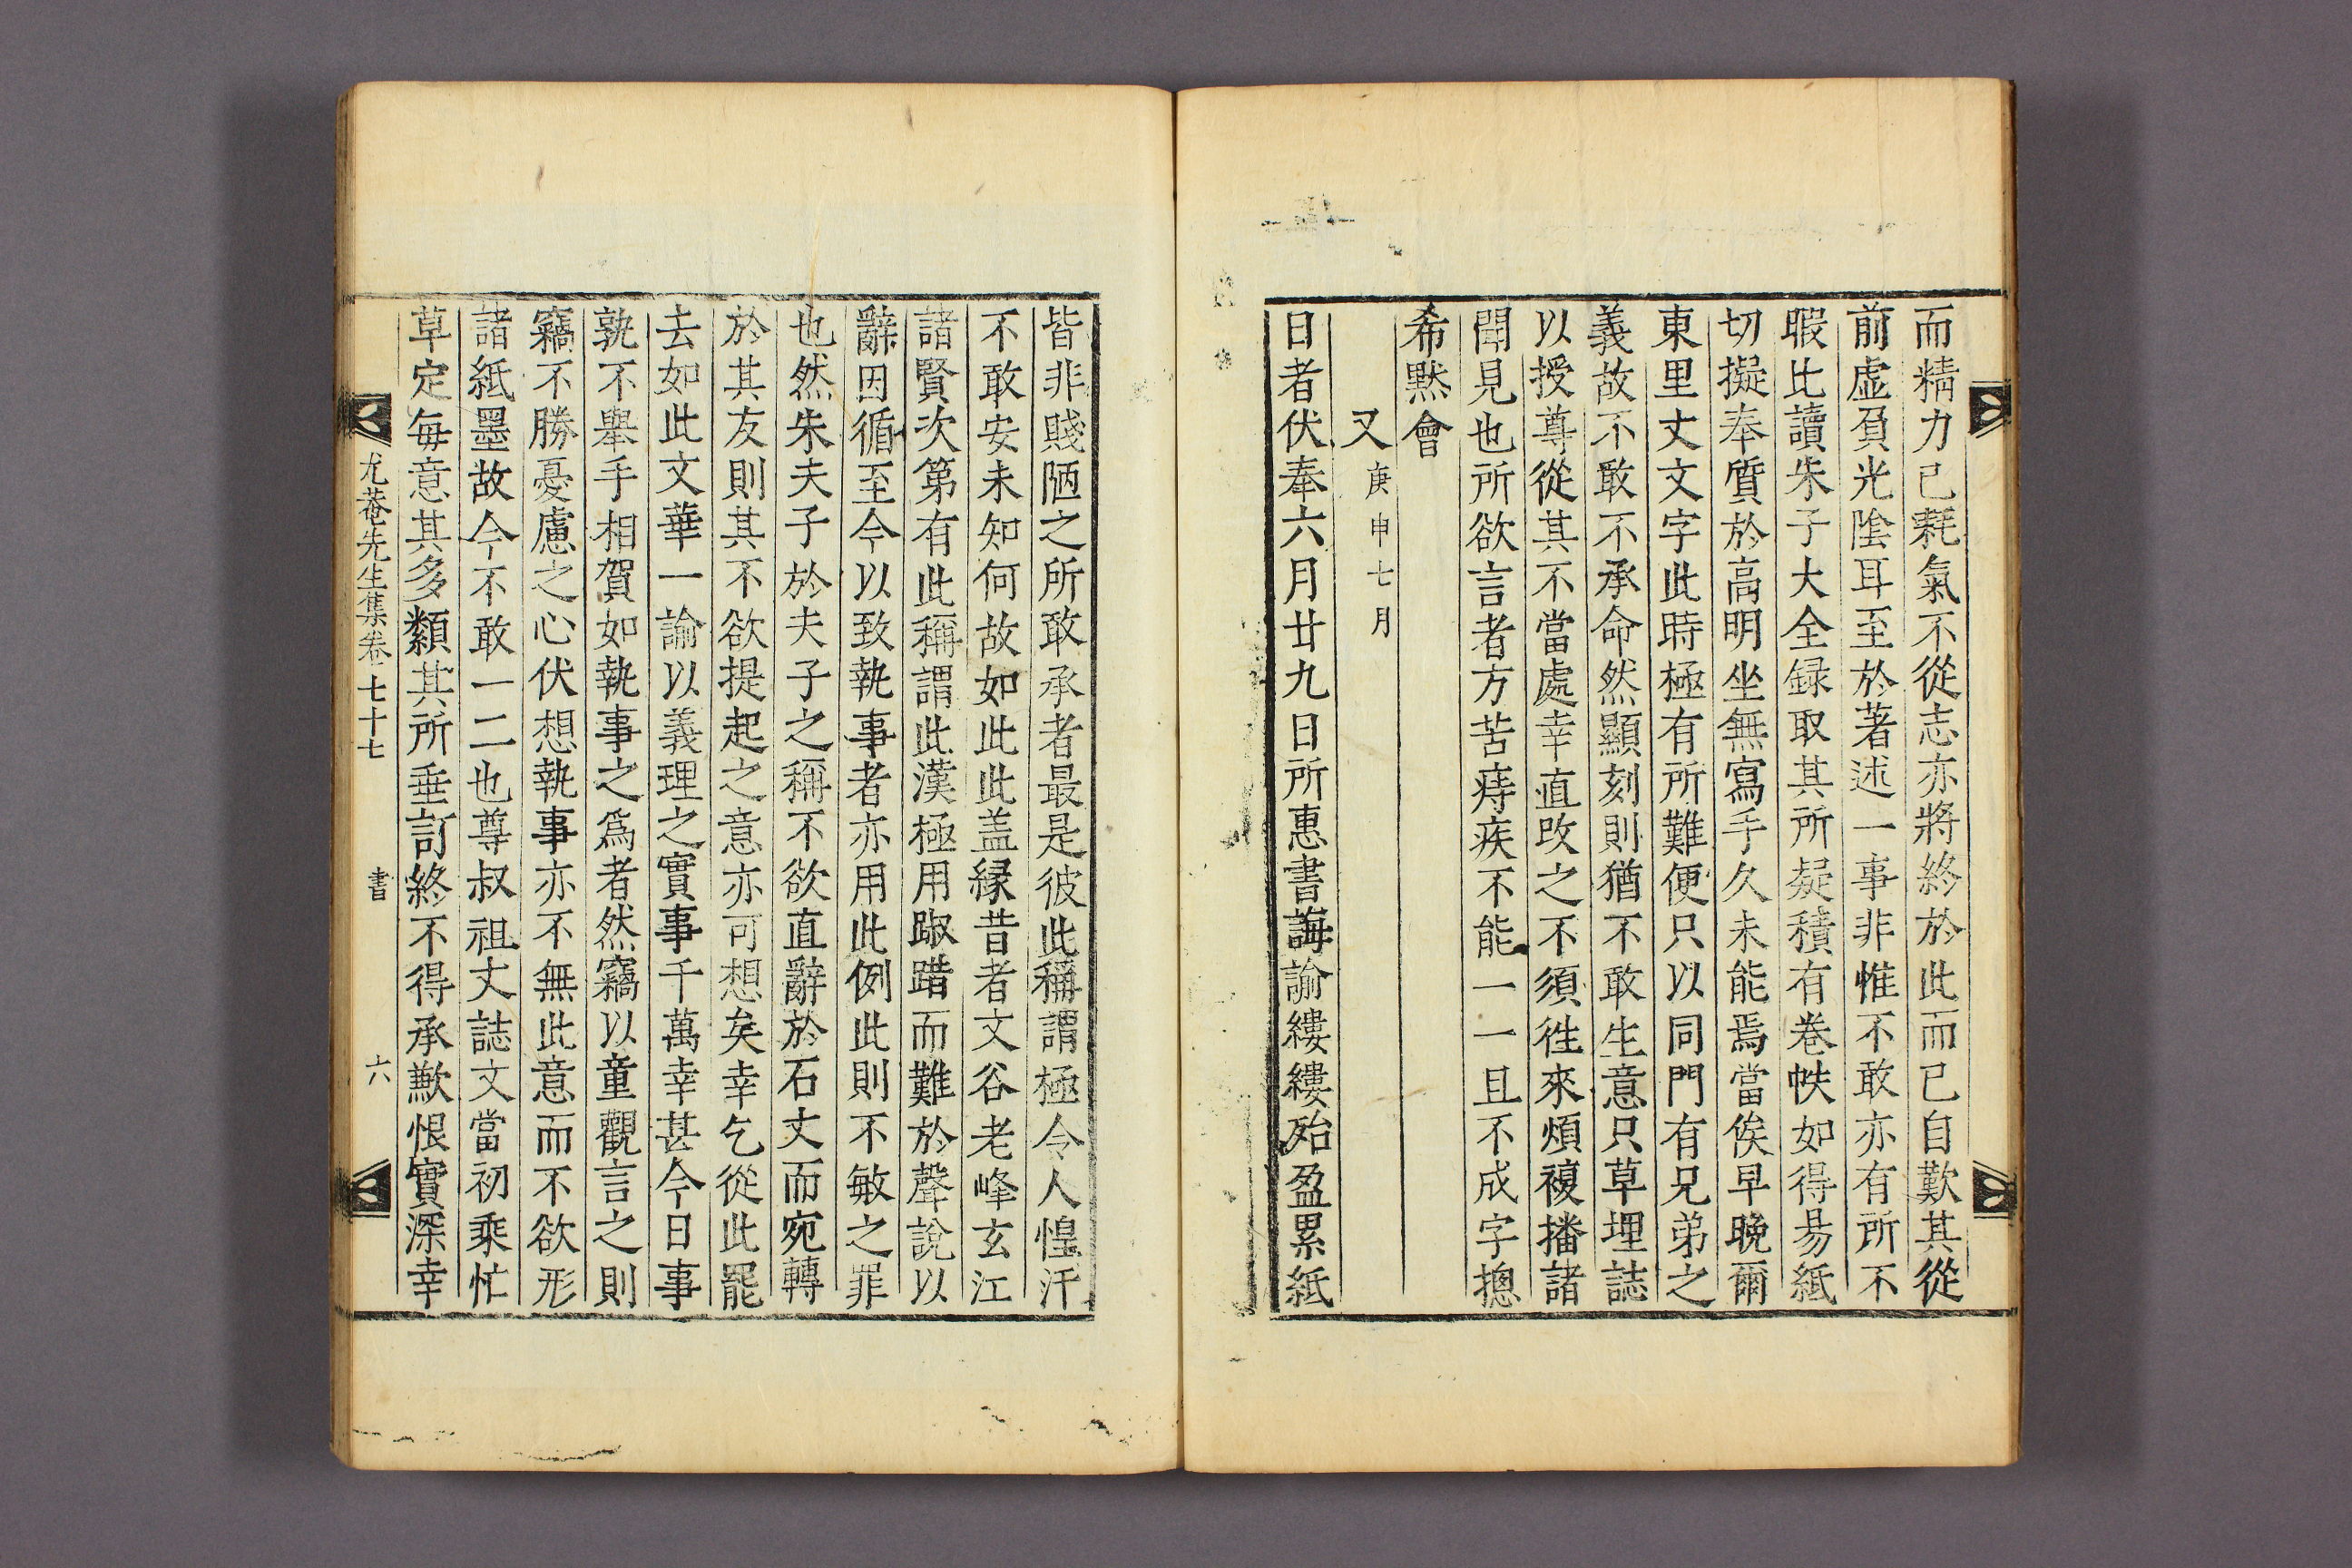 而精力已耗氣不從志亦將終於此而已自歎其從
前虛負光陰耳至於著述一事非惟不敢亦有所不
暇比讀朱子大全録取其所疑積有卷帙如得昜紙
切擬奉質於高明坐無寫手久未能焉當俟早晚爾
東里丈文字此時極有所難便只以同門有兄弟之
義故不敢不承命然顯刻則猶不敢生意只草埋誌
以授尊從其不當處幸直改之不須徃來煩複播諸
聞見也所欲言者方苦痔疾不能一一且不成字摠
希默會
又庚申七月
日者伏奉六月廿九日所惠書誨諭縷縷殆盈累紙
皆非賤陋之所敢承者最是彼此稱謂極令人惶汗
不敢安未知何故如此此盖縁昔者文谷老峰玄江
諸賢次第有此稱謂此漢極用踧踖而難於聲說以
辭因循至今以致執事者亦用此例此則不敏之罪
也然朱夫子於夫子之稱不欲直辭於石丈而宛轉
於其友則其不欲提起之意亦可想矣幸乞從此罷
去如此文華一論以義理之實事千萬幸甚今日事
孰不舉手相賀如執事之爲者然竊以童觀言之則
竊不勝憂慮之心伏想執事亦不無此意而不欲形
諸紙墨故今不敢一二也尊叔祖丈誌文當初乘忙
草定每意其多纇其所垂訂終不得承歉恨實深幸
尤菴先生集卷七十七 書 六